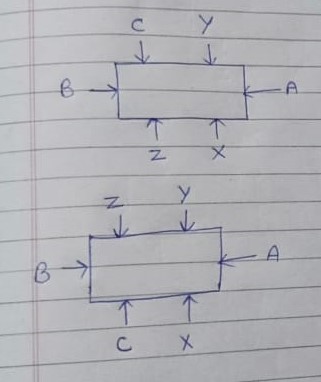 C Y
B A
Z X
Z Y
B A
C X